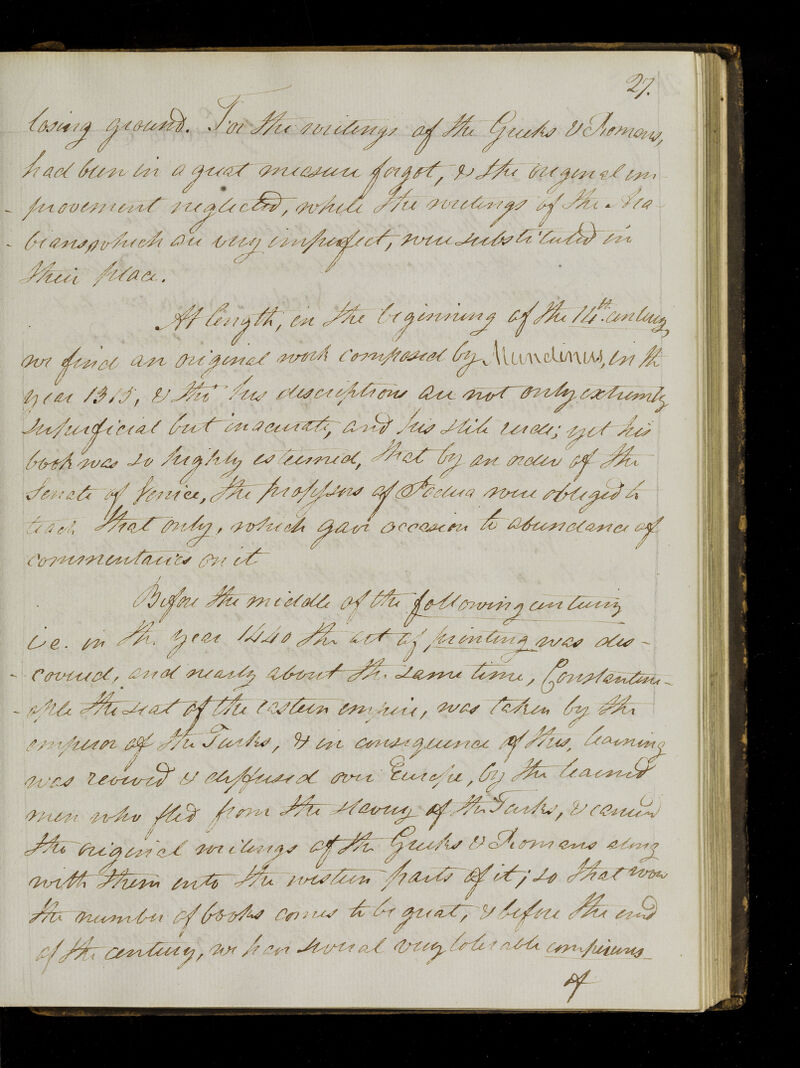 27.
losing ground. For the writings of the Greeks & Romans,
had been in a great measure forgot, & the original im-
-provement neglected, while the writings of the Ara-
-beans, which are very imperfect, were substituted in
their place.
At length, in the beginning of the 14th. century,
we find an original work composed by Mundinus, in the
year 1315, & tho' his descriptions are not only extremely
superficial but inacurate, and his stile rude; yet his
book was so highly esteemed, that by an order of the
Senate of Venice, the professors of Padua were obliged to
teach that only, which gave occasion to abundance of
commentaries on it
Before the middle of the following century
i.e. in the year 1440 the art of printing was dis-
-covered, and nearly about the same time, Constantin-
-ople the seat of the eastern empire, was taken by the
emperor of the Turks, & in consequence of this, learning
was revived & diffused over Europe, by the learned
men who fled from the slavery of the Turks, & carried
the original writings of the Greeks & Romans along
with them into the western parts of it; so that now
the number of books comes to be great, & before the end
of the century, we have several very tolerable compends
of